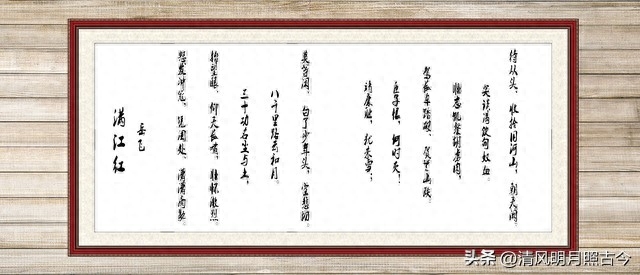 满江红
岳飞
怒发冲冠,凭阑处、潇潇雨歇。
抬望眼,仰天长啸,壮怀激烈。
三十功名尘与土,
八千里路云和月。
莫等闲、白了少年头,空悲切。
靖康耻,犹未雪;
臣子恨,何时灭!
驾长车踏破、贺兰山缺。
壮志饥餐胡虏肉,
笑谈渴饮匈奴血。
待从头、收拾旧河山,朝天阙。
头条 @清风明月照古今